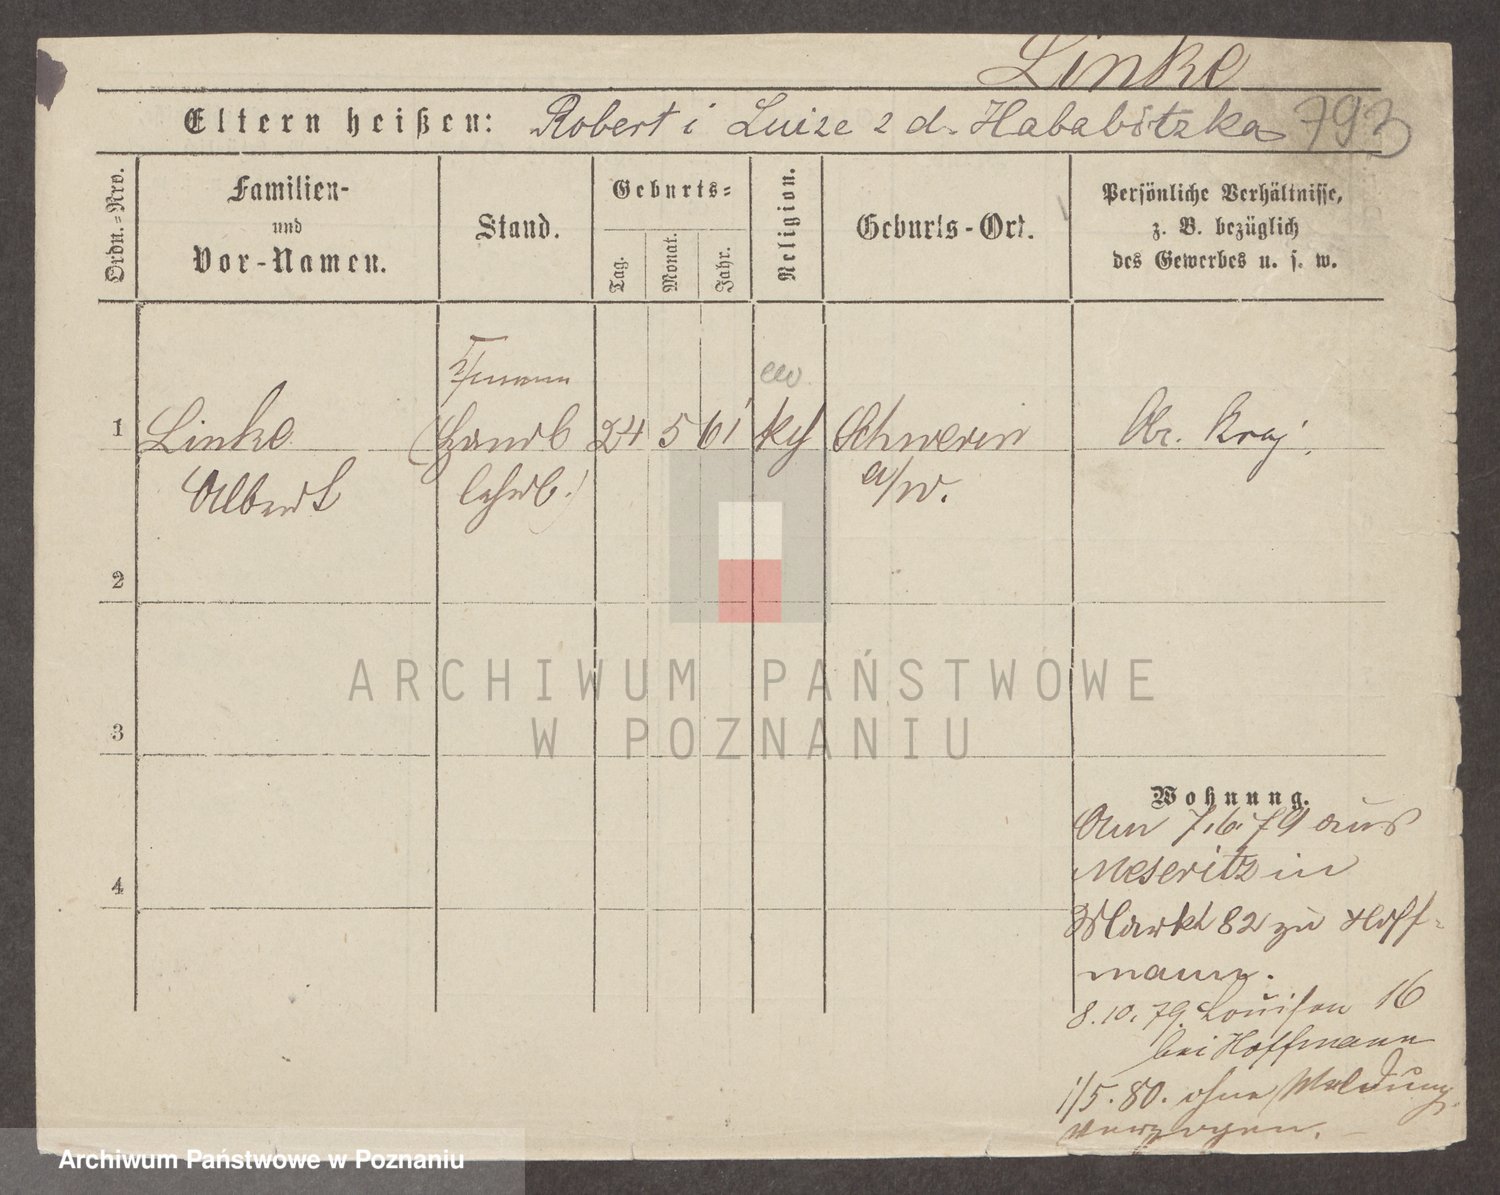 Linke
Eltern heißen: Robert i Luize z d. Hababitzka 793
Ordn.-Nro.
Familien-
und
Vor-Namen.
Stand.
Geburts-
Tag.
Monat.
Jahr.
Religion.
Geburts-Ort.
Persönliche Verhältnisse,
z. B. bezüglich
des Gewerbes u. s. w.
ew
1 Linke 24 5 61 Schwerin Ob. Kraj.
Albert a/W.
2
3
4
Wohnung.
Am 7.6.79 aus
Meseritz in
Markt 82 zu Hoff-
mann.
8.10.79 Louisen 16
bei Hoffmann
1/5.80. ohne Meldung
verzogen.
ARCHIWUM PAŃSTWOWE
W POZNANIU
Archiwum Państwowe w Poznaniu